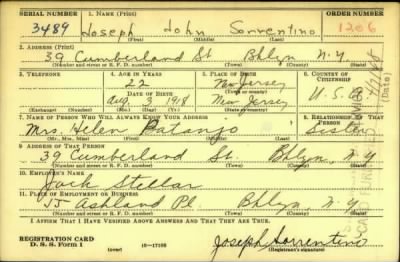 SERIAL NUMBER 1. NAME (Print) ORDER NUMBER
3489 Joseph John Sorrentino 1206
(First) (Middle) (Last)
2. ADDRESS (Print)
39 Cumberland St Bklyn N.Y.
(Number and street or R. F. D. number) (Town) (County) (State)
3. TELEPHONE 4. AGE IN YEARS 5. PLACE OF BIRTH 6. COUNTRY OF CITIZENSHIP
22 New Jersey
DATE OF BIRTH (Town or county)
Aug. 3, 1918 New Jersey U.S.A
(Exchange) (Number) (Mo.) (Day) (Yr.) (State or country)
7. NAME OF PERSON WHO WILL ALWAYS KNOW YOUR ADDRESS 8. RELATIONSHIP OF THAT PERSON
Mrs. Helen Sister
(Mr., Mrs., Miss) (First) (Middle) (Last)
9. ADDRESS OF THAT PERSON
39 Cumberland St. Bklyn, N.Y
(Number and street or R. F. D. number) (Town) (County) (State)
10. EMPLOYER'S NAME
Jack Stellar
11. PLACE OF EMPLOYMENT OR BUSINESS
55 Ashland Pl. Bklyn, N.Y.
(Number and street or R. F. D. number) (Town) (County) (State)
I AFFIRM THAT I HAVE VERIFIED ABOVE ANSWERS AND THAT THEY ARE TRUE.
REGISTRATION CARD
D. S. S. Form 1 (over) 16—17105 Joseph Sorrentino
(Registrant's signature)